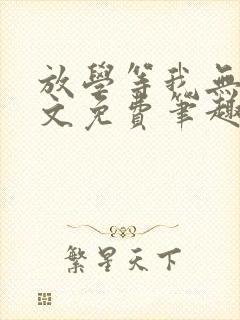 放學等我無
文免費筆趣
繁星天下